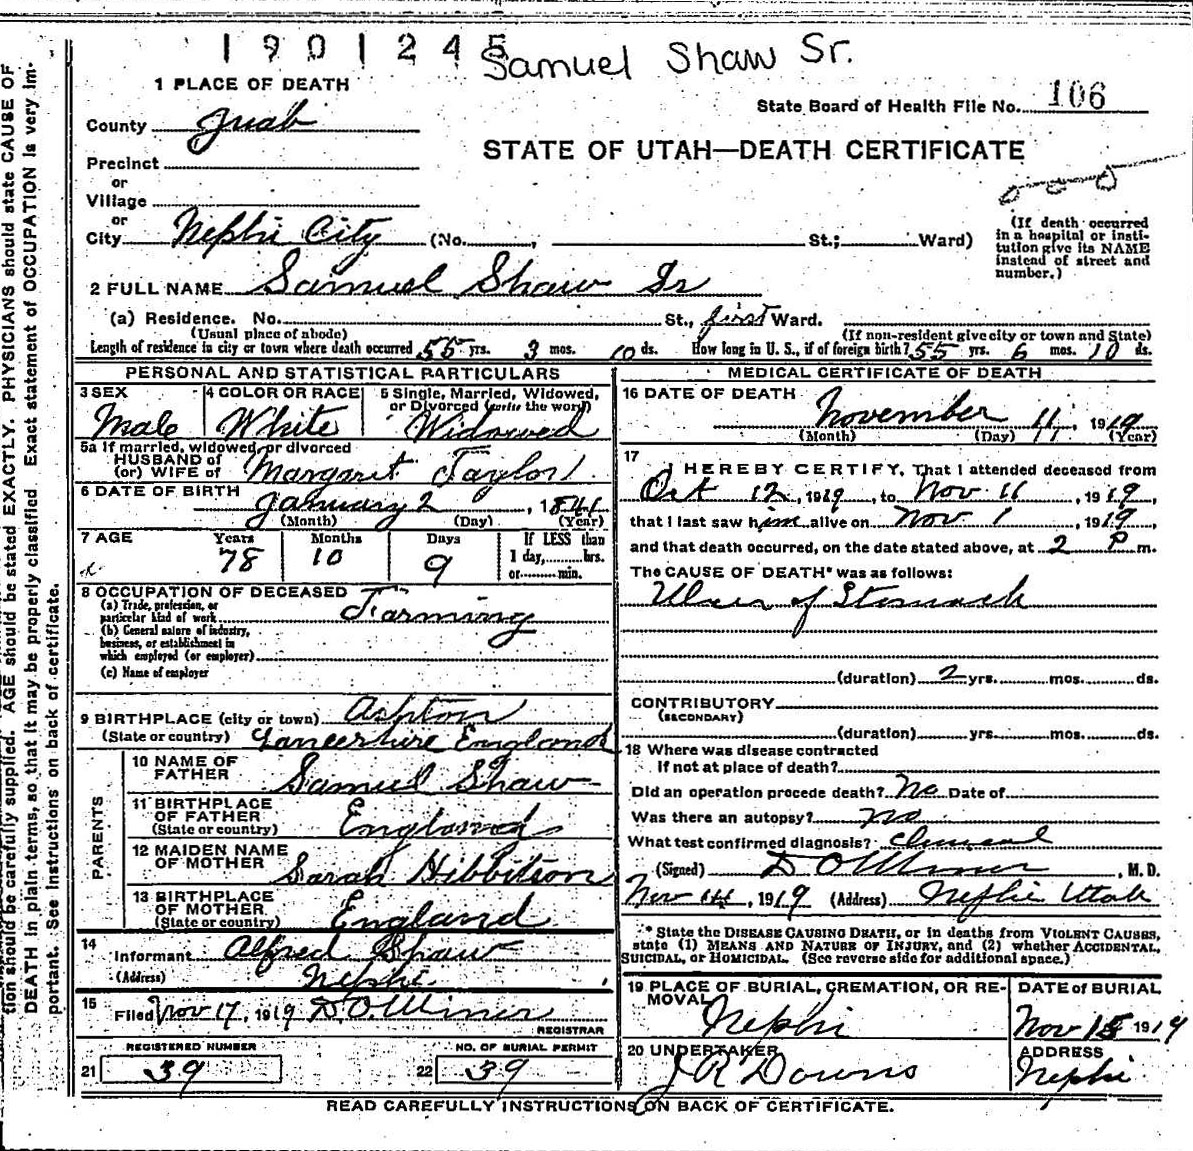 1901245
Samuel Shaw Sr.
1 PLACE OF DEATH
State Board of Health File No. 106
County Juab
STATE OF UTAH—DEATH CERTIFICATE
Precinct
or
Village
or
City Nephi City (No. , St.; Ward)
(If death occurred in a hospital or institution give its NAME instead of street and number.)
2 FULL NAME Samuel Shaw Sr
(a) Residence. No. St., first Ward.
(Usual place of abode) (If non-resident give city or town and State)
Length of residence in city or town where death occurred 55 yrs. 3 mos. 10 ds. How long in U. S., if of foreign birth? 55 yrs. 6 mos. 10 ds.
PERSONAL AND STATISTICAL PARTICULARS
3 SEX 4 COLOR OR RACE 5 Single, Married, Widowed, or Divorced (write the word)
Male White Widowed
5a If married, widowed, or divorced
HUSBAND of
(or) WIFE of Margaret Taylor
6 DATE OF BIRTH
January 2, 1841
(Month) (Day) (Year)
7 AGE Years Months Days If LESS than
78 10 9 1 day, hrs.
or min.
8 OCCUPATION OF DECEASED
(a) Trade, profession, or
particular kind of work Farming
(b) General nature of industry,
business, or establishment in
which employed (or employer)
(c) Name of employer
9 BIRTHPLACE (city or town) Ashton
(State or country) Lancershire England
PARENTS
10 NAME OF
FATHER Samuel Shaw
11 BIRTHPLACE
OF FATHER
(State or country) England
12 MAIDEN NAME
OF MOTHER Sarah Hibbitson
13 BIRTHPLACE
OF MOTHER
(State or country) England
14
Informant Alfred Shaw
(Address) Nephi.
15
Filed Nov 17, 1919 D.O. Miner
REGISTRAR
REGISTERED NUMBER NO. OF BURIAL PERMIT
21 39 22 39
MEDICAL CERTIFICATE OF DEATH
16 DATE OF DEATH
November 11, 1919
(Month) (Day) (Year)
17
I HEREBY CERTIFY, That I attended deceased from
Oct 12, 1919, to Nov 11, 1919,
that I last saw him alive on Nov 1, 1919,
and that death occurred, on the date stated above, at 2 P m.
The CAUSE OF DEATH* was as follows:
Ulcer of Stomach
(duration) 2 yrs. mos. ds.
CONTRIBUTORY
(SECONDARY)
(duration) yrs. mos. ds.
18 Where was disease contracted
If not at place of death?
Did an operation procede death? No Date of
Was there an autopsy? no
What test confirmed diagnosis? Clinical
(Signed) D O Miner, M. D.
Nov 14, 1919 (Address) Nephi Utah
* State the DISEASE CAUSING DEATH, or in deaths from VIOLENT CAUSES,
state (1) MEANS AND NATURE OF INJURY, and (2) whether ACCIDENTAL,
SUICIDAL, or HOMICIDAL. (See reverse side for additional space.)
19 PLACE OF BURIAL, CREMATION, OR RE-
MOVAL DATE of BURIAL
Nephi Nov 15 1919
20 UNDERTAKER ADDRESS
J R Downs Nephi
READ CAREFULLY INSTRUCTIONS ON BACK OF CERTIFICATE.
tion should be carefully supplied. AGE should be stated EXACTLY. PHYSICIANS should state CAUSE OF
DEATH in plain terms, so that it may be properly classified Exact statement of OCCUPATION is very im-
portant. See instructions on back of certificate.